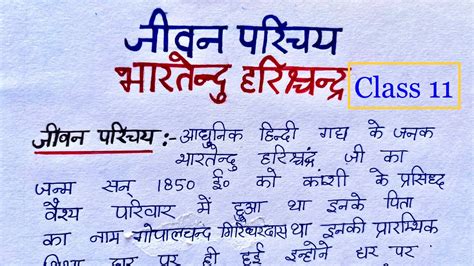 जीवन परिचय
भारतेन्दु हरिश्चन्द्र
Class 11
जीवन परिचय :- आधुनिक हिन्दी गद्य के जनक
भारतेन्दु हरिश्चंद्र जी का
जन्म सन् 1850 ई० को कांशी के प्रसिध्द
वैश्य परिवार में हुआ था इनके पिता
का नाम गोपालचन्द गिरिधरदास था इनकी प्रारम्भिक
शिक्षा घर पर ही हुई इन्होने घर पर